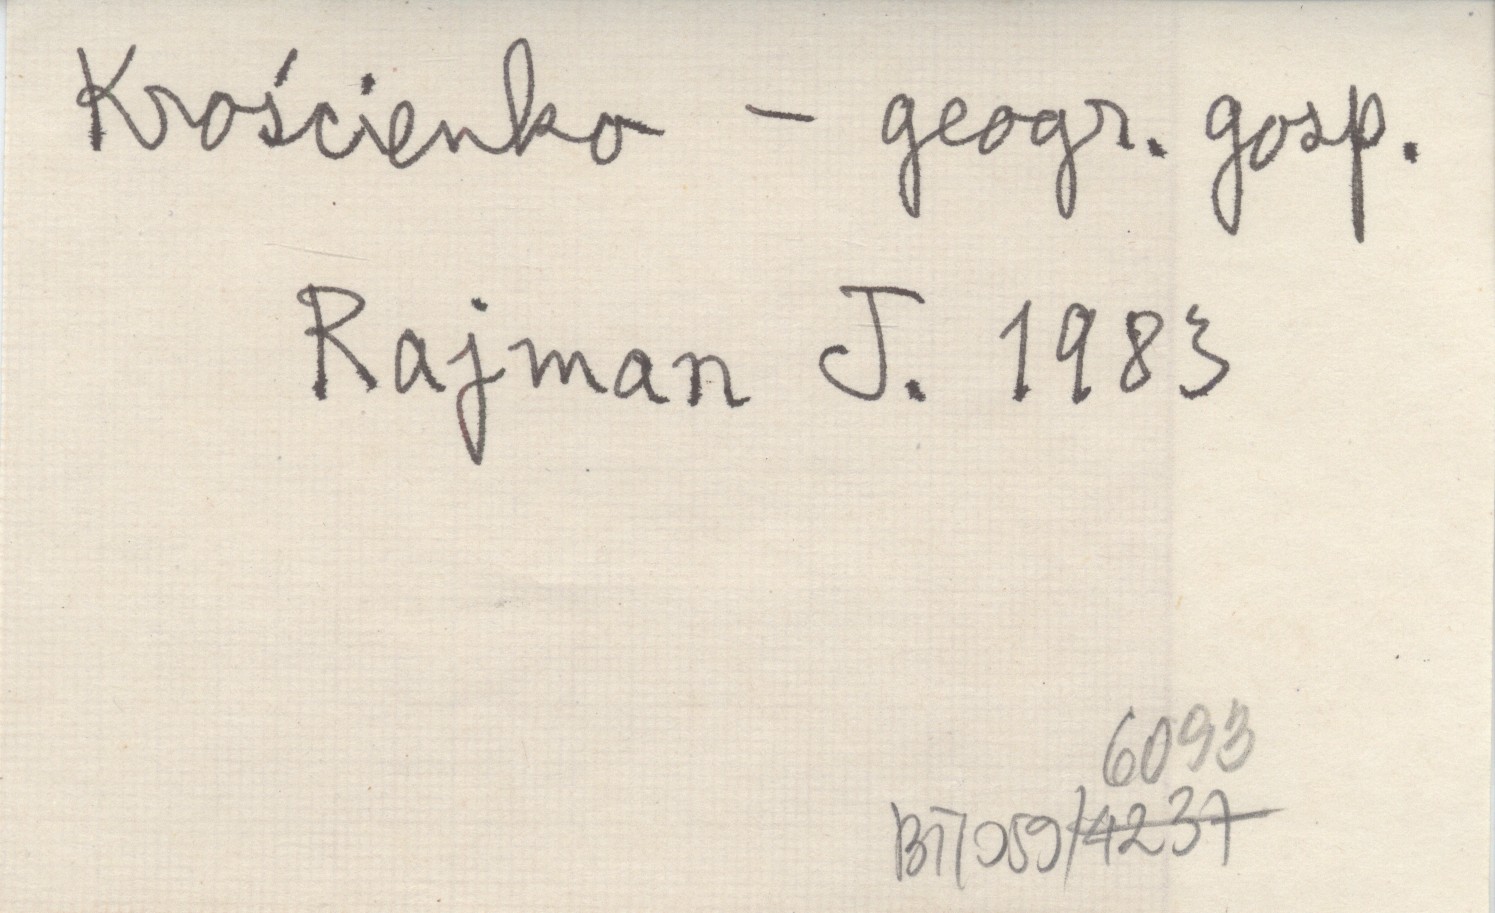 Krościenko - geogr. gosp.
Rajman J. 1983
6093
BT/059/4237